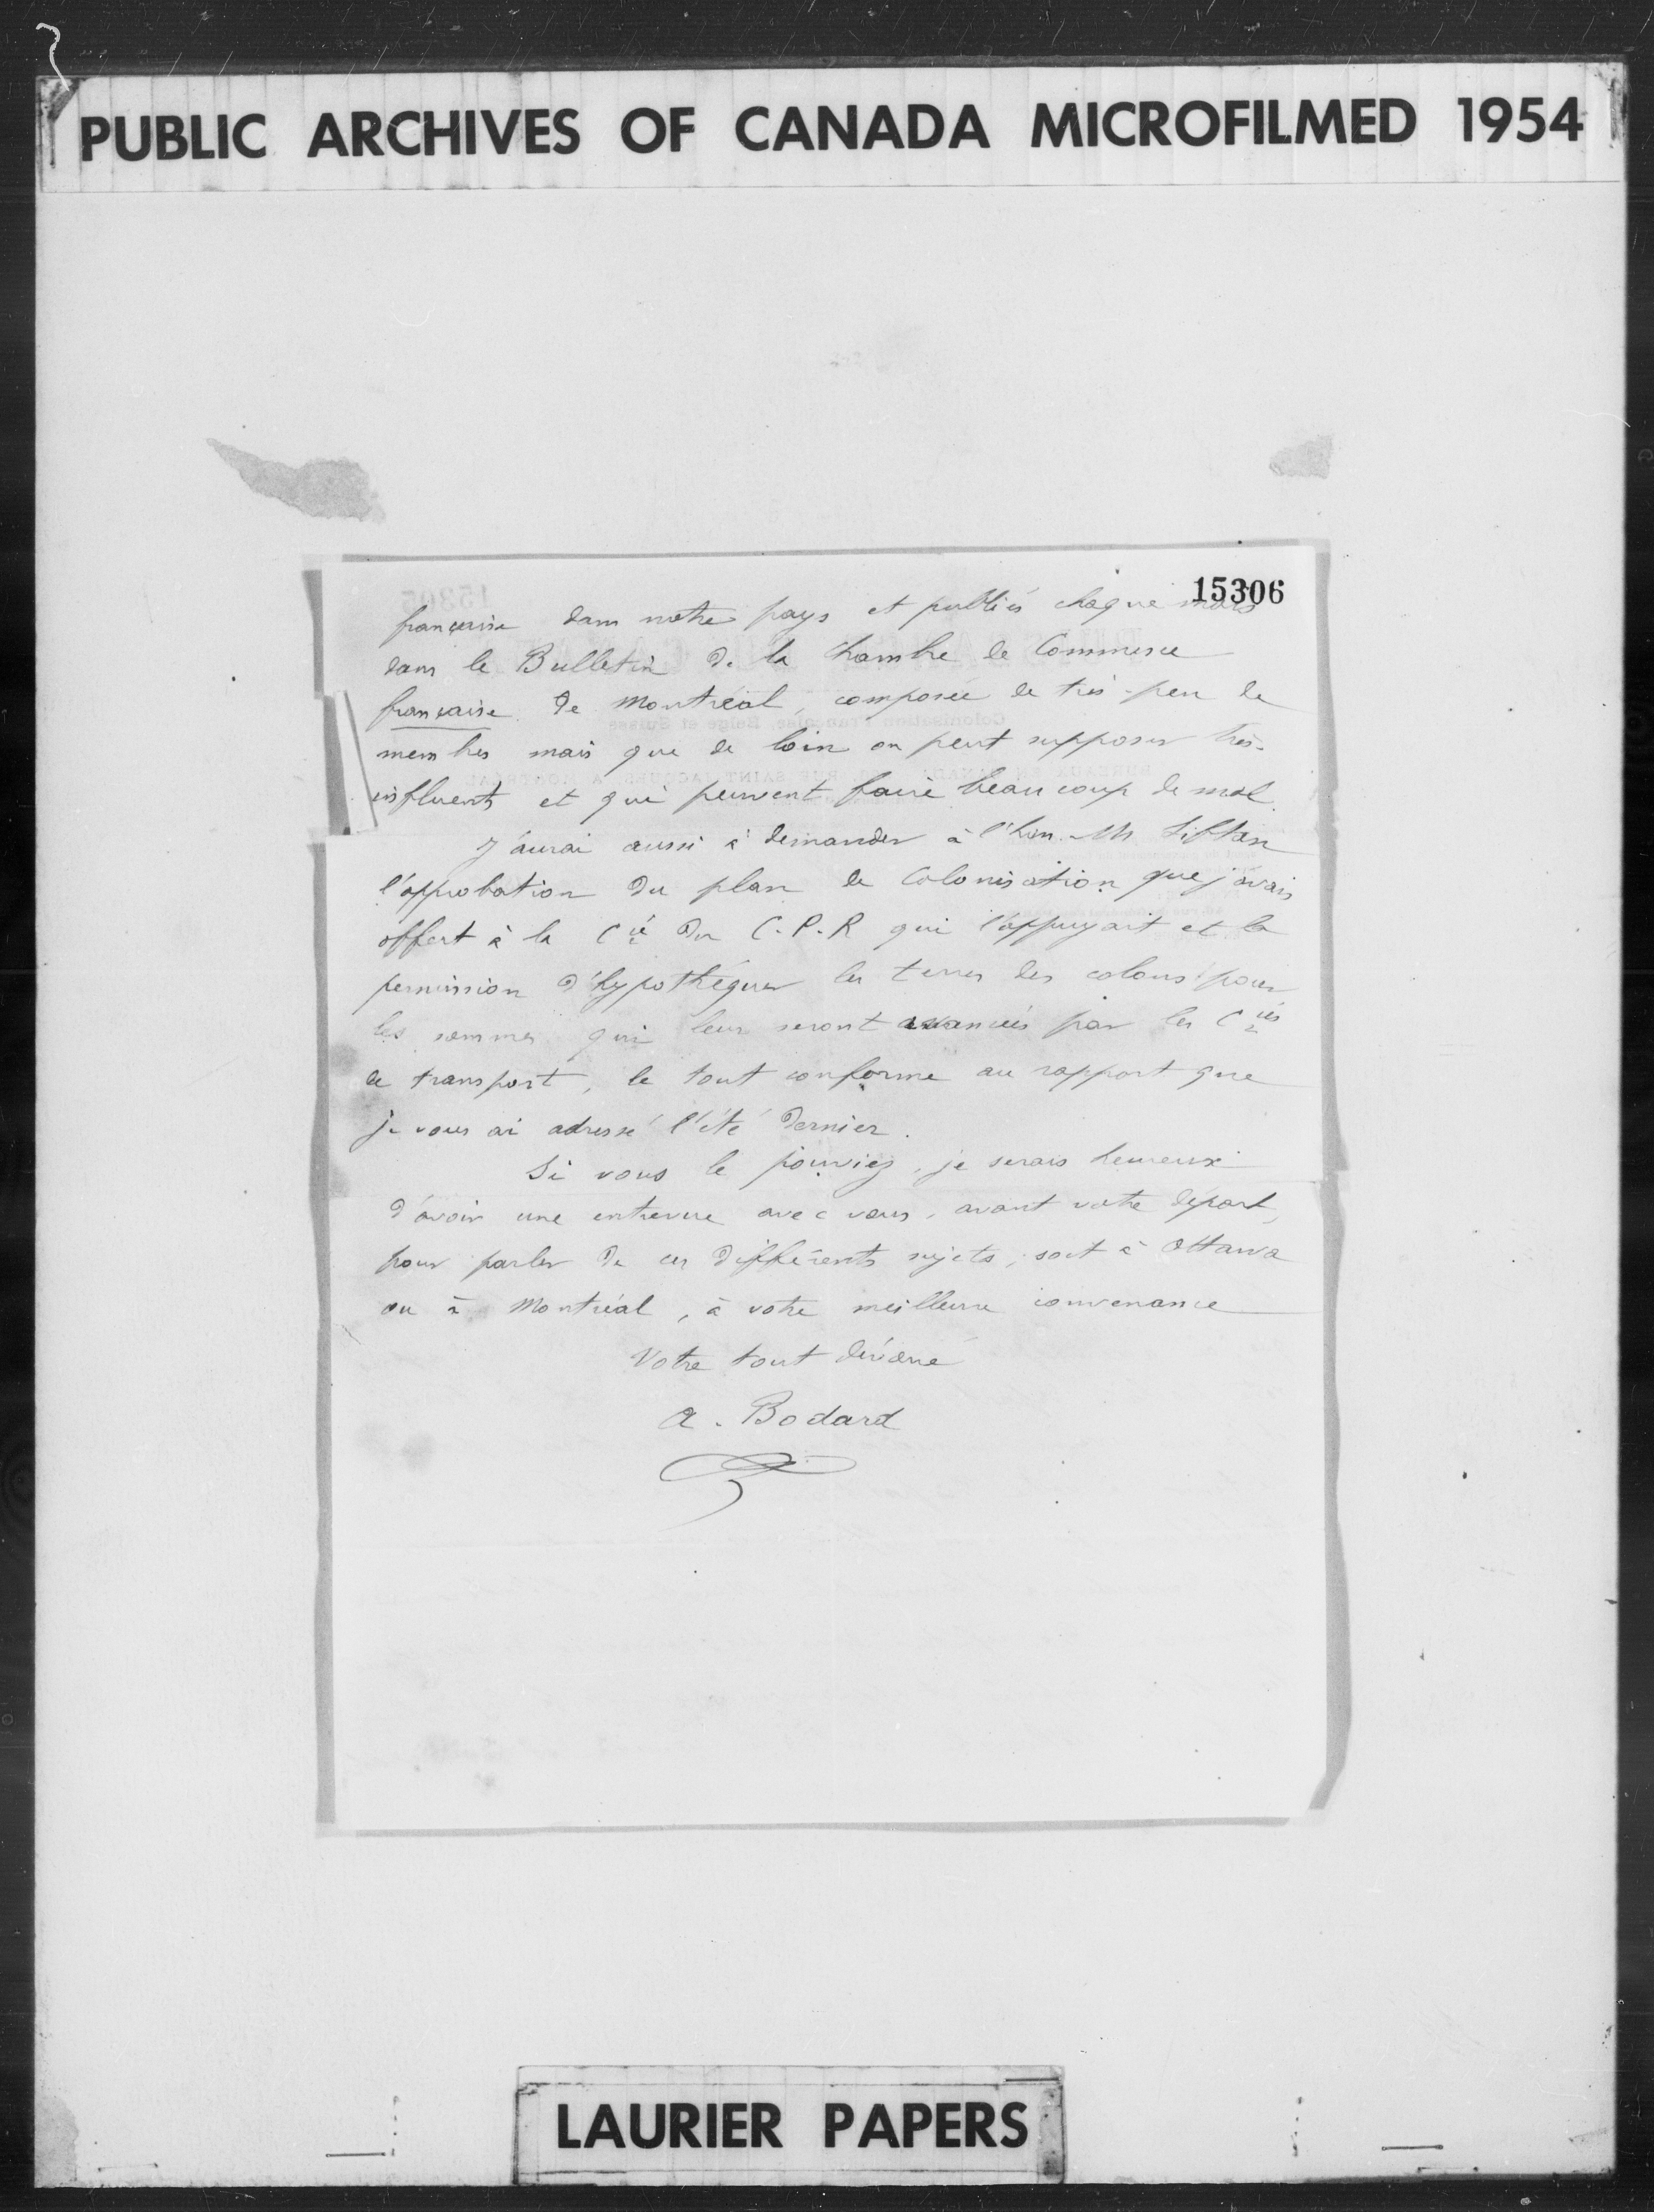 PUBLIC ARCHIVES OF CANADA MICROFILMED 1954
15306
française dans notre pays et publiés chaque mois
dans le Bulletin de la Chambre de Commerce
française de Montréal, composée de très-peu de
membres mais que de loin on peut supposer très-
influents et qui peuvent faire beaucoup de mal.
J'aurai aussi à demander à l'hon. M Sifton
l'approbation du plan de Colonisation que j'avais
offert à la Cie du C.P.R qui l'appuyait et la
permission d'hypothéquer les terres des colons pour
les sommes qui leur seront avancées par les Cies
de transport, le tout conforme au rapport que
je vous ai adressé l'été dernier.
Si vous le pouviez, je serais heureux
d'avoir une entrevue avec vous, avant votre départ,
pour parler de ces différents sujets, soit à Ottawa
ou à Montréal, à votre meilleure convenance
Votre tout dévoué
A. Bodard
LAURIER PAPERS